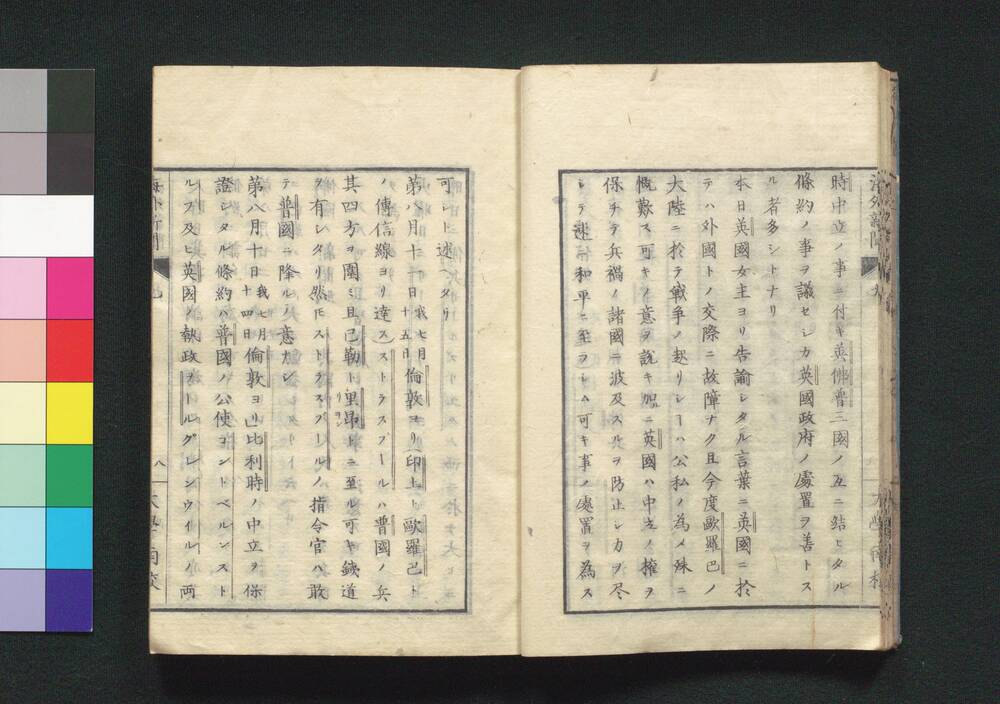 時中立ノ事ニ付キ英佛魯三國ノ互ニ結ヒタル
條約ノ事ヲ議セシカ英國政府ノ處置ヲ善トス
ル者多シトナリ
本日英國女主ヨリ告諭シタル言葉ニ英國ニ於
テハ外國トノ交際ニ故障ナク且今度歐羅巴ノ
大陸ニ於テ戰爭ノ起リシーハ公私ノ為メ殊ニ
慨歎ス可キノ意ヲ説キ加ニ英國ハ中立ノ權ヲ
保チテ兵禍ノ諸國ニ波及スルヲ防止シカヲ尽
シテ速ニ和平ニ至ラトム可キ事ノ處置ヲ為ス
可シト述ヘタリ
第八月十一日我七月十五日倫敦ヨリ印上ト歐羅巴ト
ノ傳信線ヨリ達スストラスブールハ普國ノ兵
其四方ヲ圍ミ且已勒ト里昂リヨントニ至ル可キ鐵道
ヲ有シタリ然𪜈ストラスブールノ指令官ハ敢
テ普國ニ降ルノ意ナシ
第八月十日我七月十四日倫敦ヨリ比利時ノ中立ヲ保
證シタル條約ハ普國ノ公使コントベルンスト
ルフ及ヒ英國ノ執政ヲトルグレンウイルノ両
海外新聞
八
大學南校